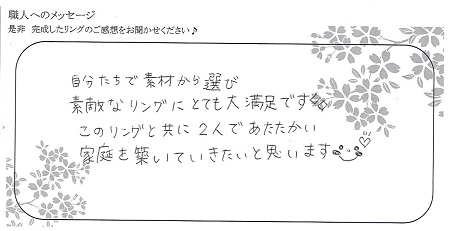 職人へのメッセージ
是非 完成したリングのご感想をお聞かせください♪
自分たちで素材から選び
素敵なリングにとても大満足です
このリングと共に2人であたたかい
家庭を築いていきたいと思います